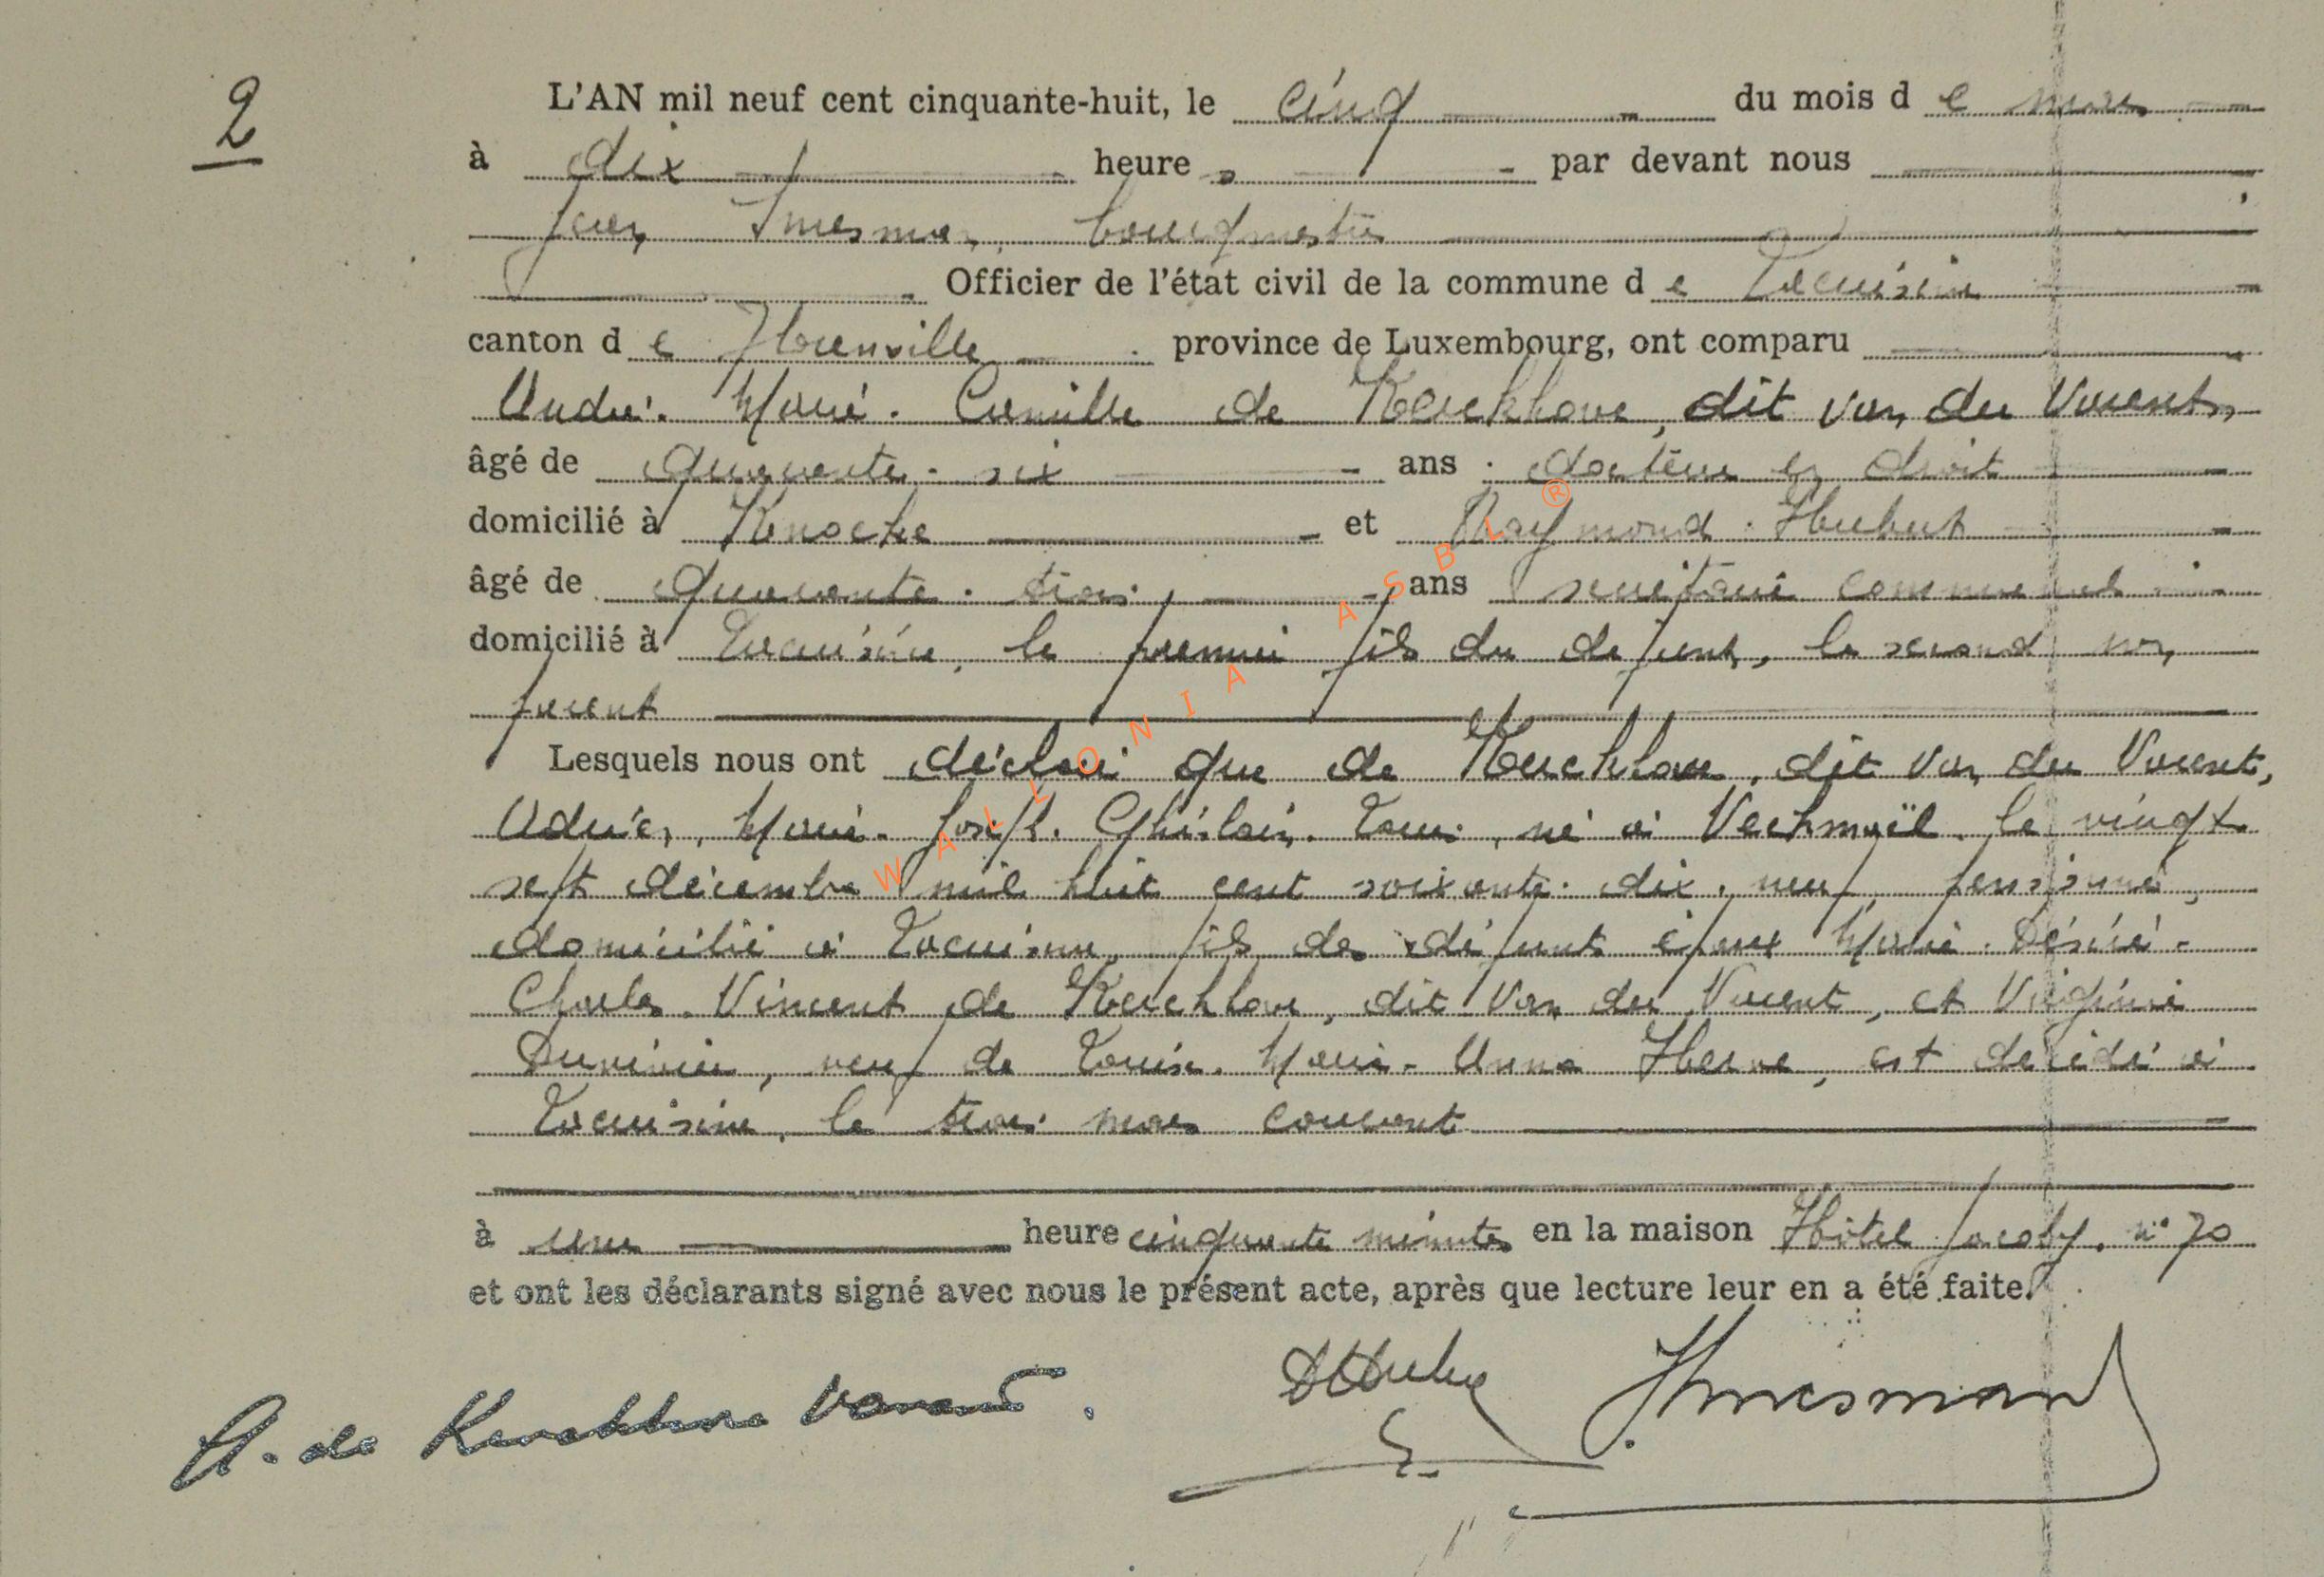 2
L'AN mil neuf cent cinquante-huit, le cinq du mois d e mars
à dix heure s par devant nous
Jean Innesman, bourgmestre
Officier de l'état civil de la commune d e Lacuisine
canton d e Florenville province de Luxembourg, ont comparu
André-Marie-Camille de Kerckhove, dit van der Varent,
âgé de quarante-six ans docteur en droit
domicilié à Knocke et Raymond Hubert
âgé de quarante-trois ans secrétaire communal
domicilié à Lacuisine, le premier fils du défunt, le second non
parent
Lesquels nous ont déclaré que de Kerckhove, dit Van der Varent,
Adrien, Marie-Joseph-Ghislain-Louis, né à Vechmaël le vingt
sept décembre mil huit cent soixante-dix-neuf, pensionné,
domicilié à Lacuisine, fils des défunts époux Marie-Désiré-
Charles-Vincent de Kerckhove, dit Van der Varent, et Virginie
veuf de Louise-Marie-Anna Herve, est décédé à
Lacuisine, le trois mars courant
à une heure cinquante minutes en la maison Hôtel Jacoby, n° 70
et ont les déclarants signé avec nous le présent acte, après que lecture leur en a été faite.
A. de Kerckhove Varent.
WALLONIA ASBL ®